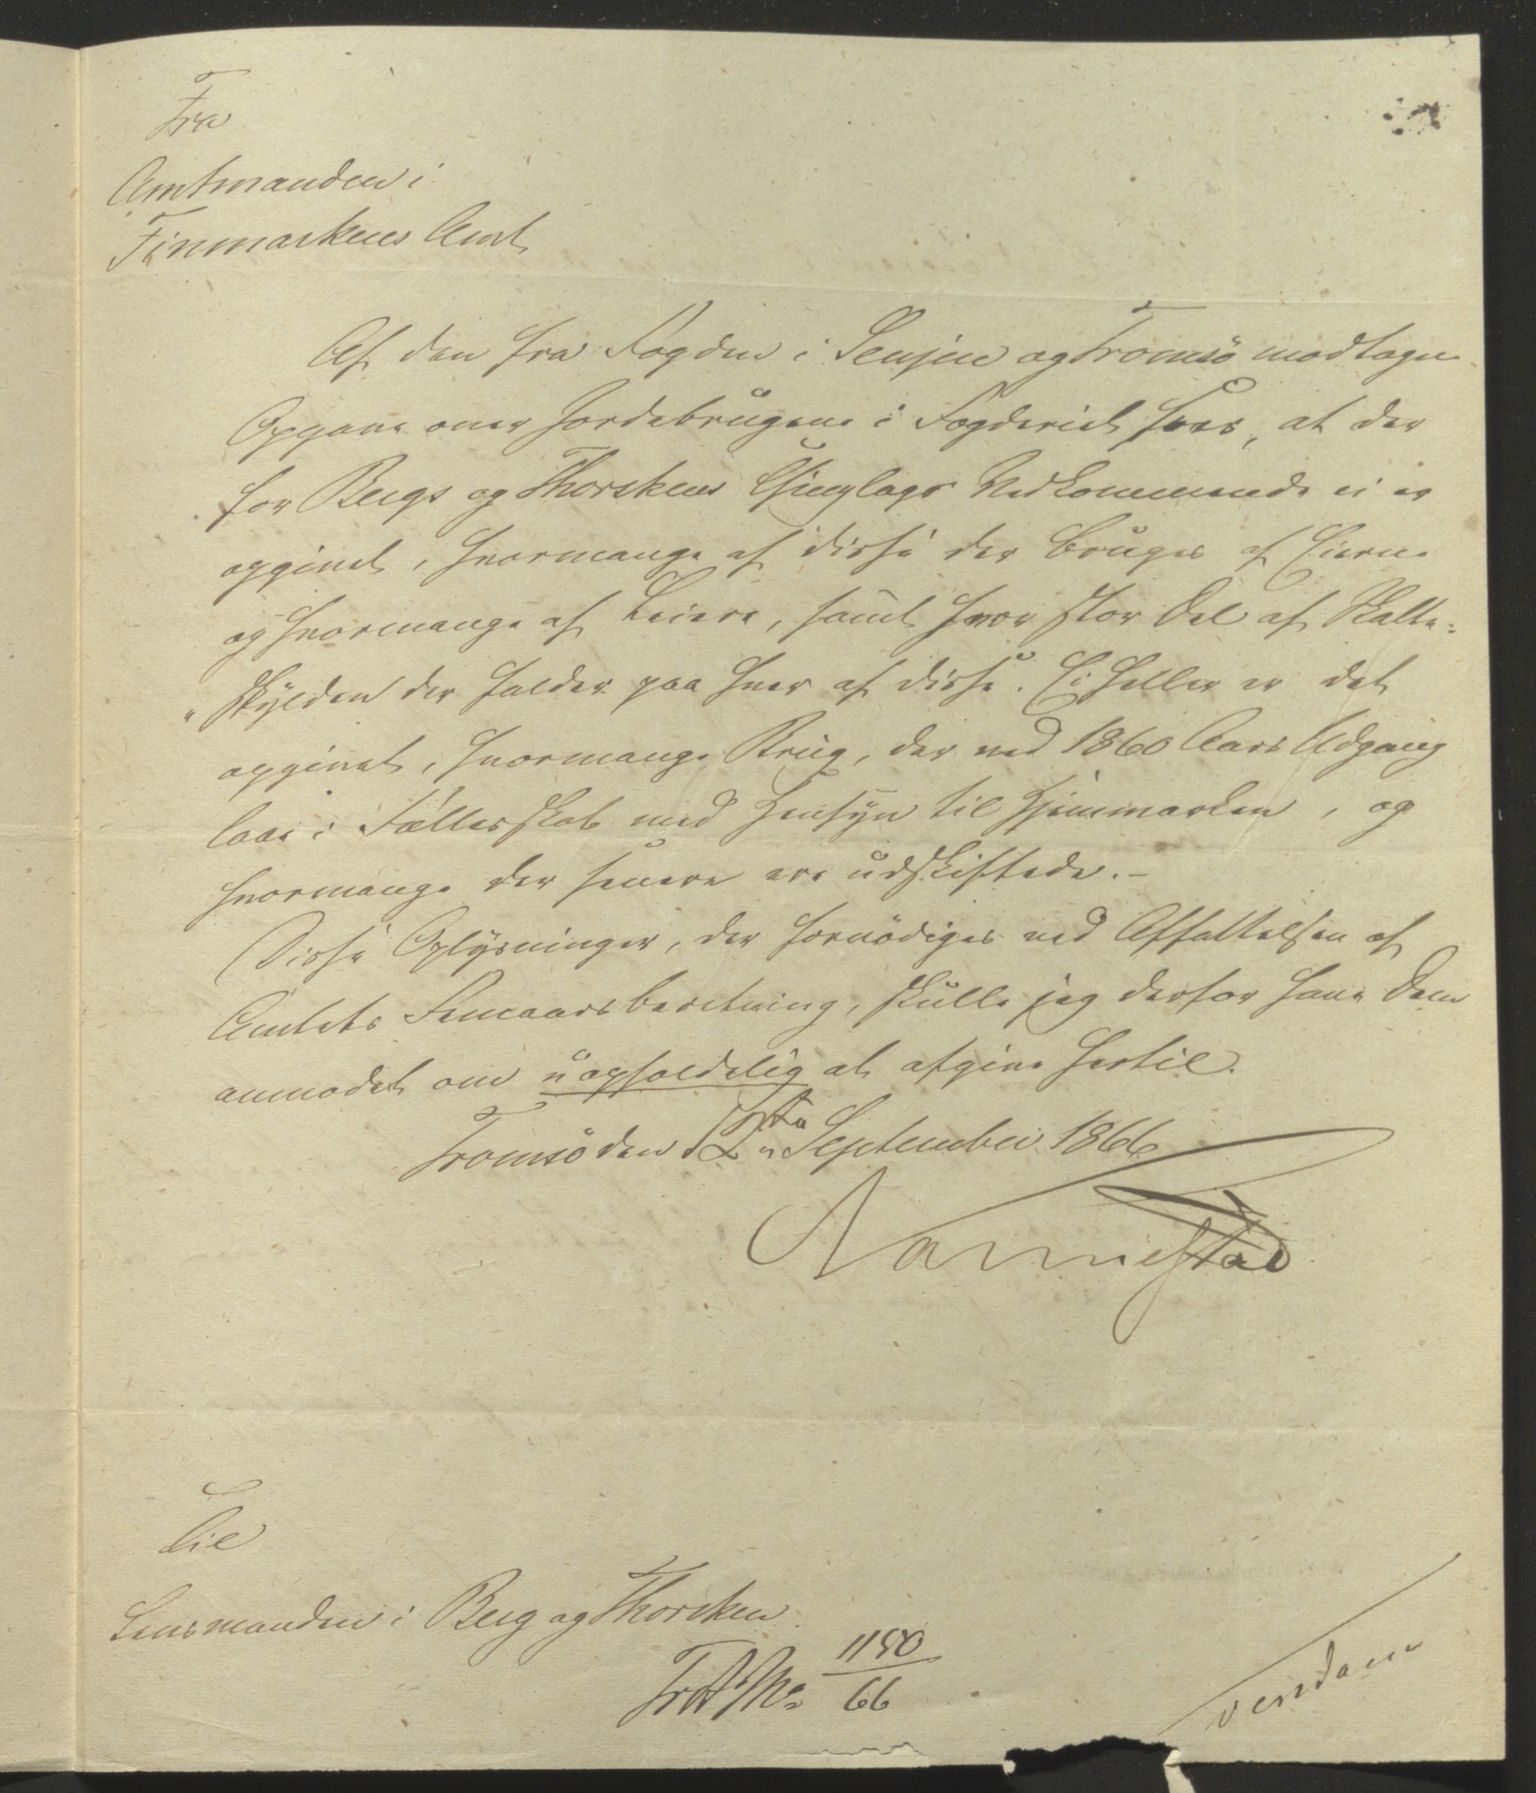 Fra
Amtmanden i
Finmarkens Amt
Af den fra Fogden i Senjen og Tromsö modtagne
Opgave over Jordebrugene i Fogderiet sees, at der
for Bergs og Thorskens Thinglags Vedkommende ei er
opgivet, hvormange af disse der bruges af Eierne
og hvormange af Leiere, samt hvor stor Del af Skatte-
"skylden der falder paa hver af disse. Ei heller er det
opgivet, hvormange Brug, der ved 1860 Aars Udgang
laae i Fællesskab med Hensyn til Hjemmarken, og
hvormange der senere ere udskiftede.-
Disse Oplysninger, der fornödiges ved Affattelsen af
Amtets Femaarsberetning, skulle jeg derfor have Dem
anmodet om uopholdelig at afgive hertil.
Tromsö den 12te September 1866
Nannestad
Til
Lensmanden i Berg og Thorsken
No 1150
66
vendom